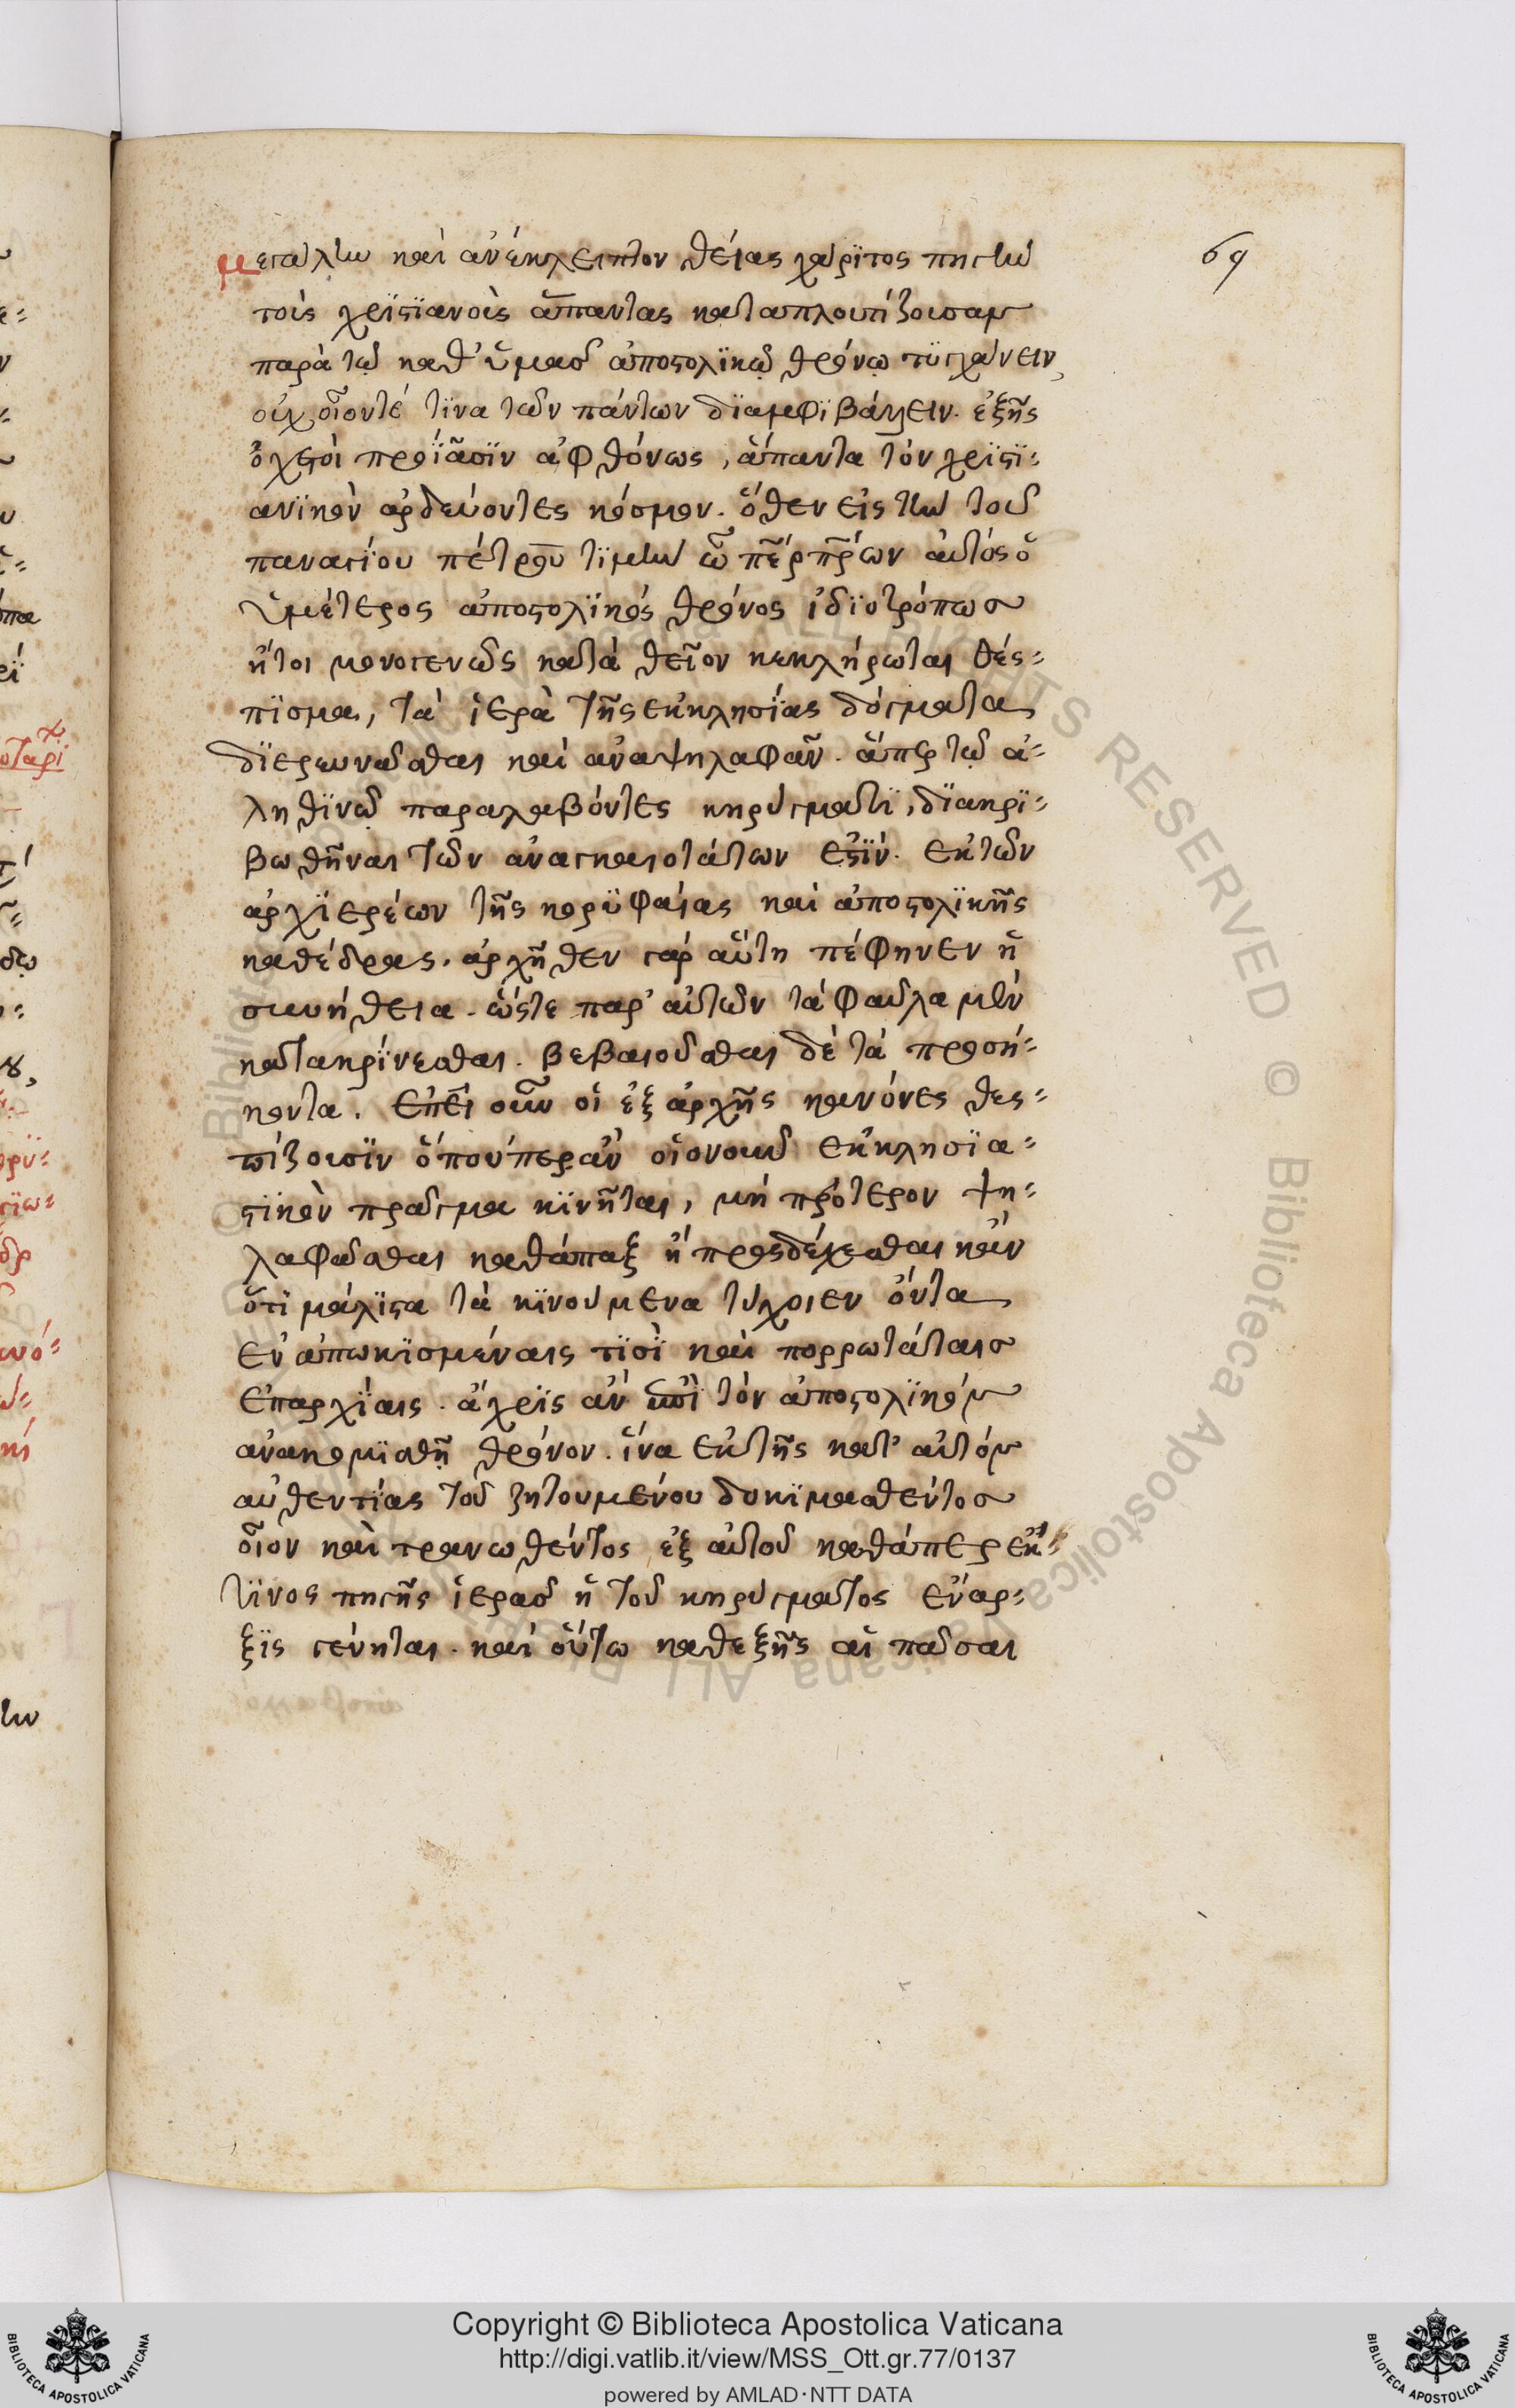 69
μεγάλην καὶ ἀνέκλειπτον θείας χάρϊτος πηγὴν
τοῖς χρϊστϊανοῖς ἅπαντας καταπλουτίζουσαν
παρὰ τῷ καθ' ὑμᾶσ ἀποστολϊκῷ θρόνῳ τϋγχάνειν,
οὐχ οἷοντέ τϊνα τῶν πάντων δϊαμφϊβάλλειν. ἐξῆς
ὀχετοὶ προϊᾶσϊν ἀφθόνως, ἅπαντα τὸν χρϊστϊ-
ανϊκὸν ἀρδεύοντες κόσμον. ὅθεν εἰς τὴν τοῦ
παναγίου πέτρου τϊμὴν ὦ πε̃ρ πρ̃ων αὐτὸς ὁ
ὑμέτερος ἀποστολϊκὸς θρόνος ἰδϊοτρόπωσ
ἤτοι μονογενῶς κατὰ θεῖον κεκλήρωται θέσ-
πϊσμα, τὰ ἱερὰ τῆς ἐκκλησίας δόγματα
δϊερευνᾶσθαι καὶ ἀναψηλαφᾶν. ἅπερ τῷ ἀ-
ληθϊνῷ παραλαβόντες κηρύγματϊ, δϊακρϊ-
βωθῆναι τῶν ἀναγκαιοτάτων ἐστϊν. ἐκ τῶν
ἀρχϊερέων τῆς κορϋφαίας καὶ ἀποστολϊκῆς
καθέδρας. ἀρχῆθεν γὰρ αὕτη πέφηνεν ἡ
συνήθεια. ὥστε παρ' αὐτῶν τὰ φαῦλα μὲν
κατακρίνεσθαι. βεβαιοῦσθαι δὲ τὰ προσή-
κοντα. ἐπεὶ οὖν οἱ ἐξ ἀρχῆς κανόνες θεσ-
πίζουσϊν ὅπουπερ ἂν οἱονοῦν ἐκκλησϊα-
στϊκὸν πρᾶγμα κϊνῆται, μὴ πρότερον ψη-
λαφᾶσθαι καθάπαξ ἢ προσδέχεσθαι κἂν
ὅτϊ μάλϊστα τὰ κϊνούμενα τύχοιεν ὄντα
ἐν ἀπωκϊσμέναις τϊσϊ καὶ πορρωτάταισ
ἐπαρχίαις. ἄχρϊς ἂν ἐπὶ τὸν ἀποστολϊκὸν
ἀνακομϊσθῇ θρόνον. ἵνα ἐκ τῆς κατ' αὐτὸν
αὐθεντίας τοῦ ζητουμένου δοκϊμασθέντοσ
οἷον καὶ τρανωθέντος ἐξ αὐτοῦ καθάπερ ἐκ
τϊνος πηγῆς ἱερᾶσ ἡ τοῦ κηρύγματος ἔναρ-
ξϊς γένηται. καὶ οὕτω καθεξῆς αἱ πᾶσαι
Copyright © Biblioteca Apostolica Vaticana
http://digi.vatlib.it/view/MSS_Ott.gr.77/0137
powered by AMLAD·NTT DATA